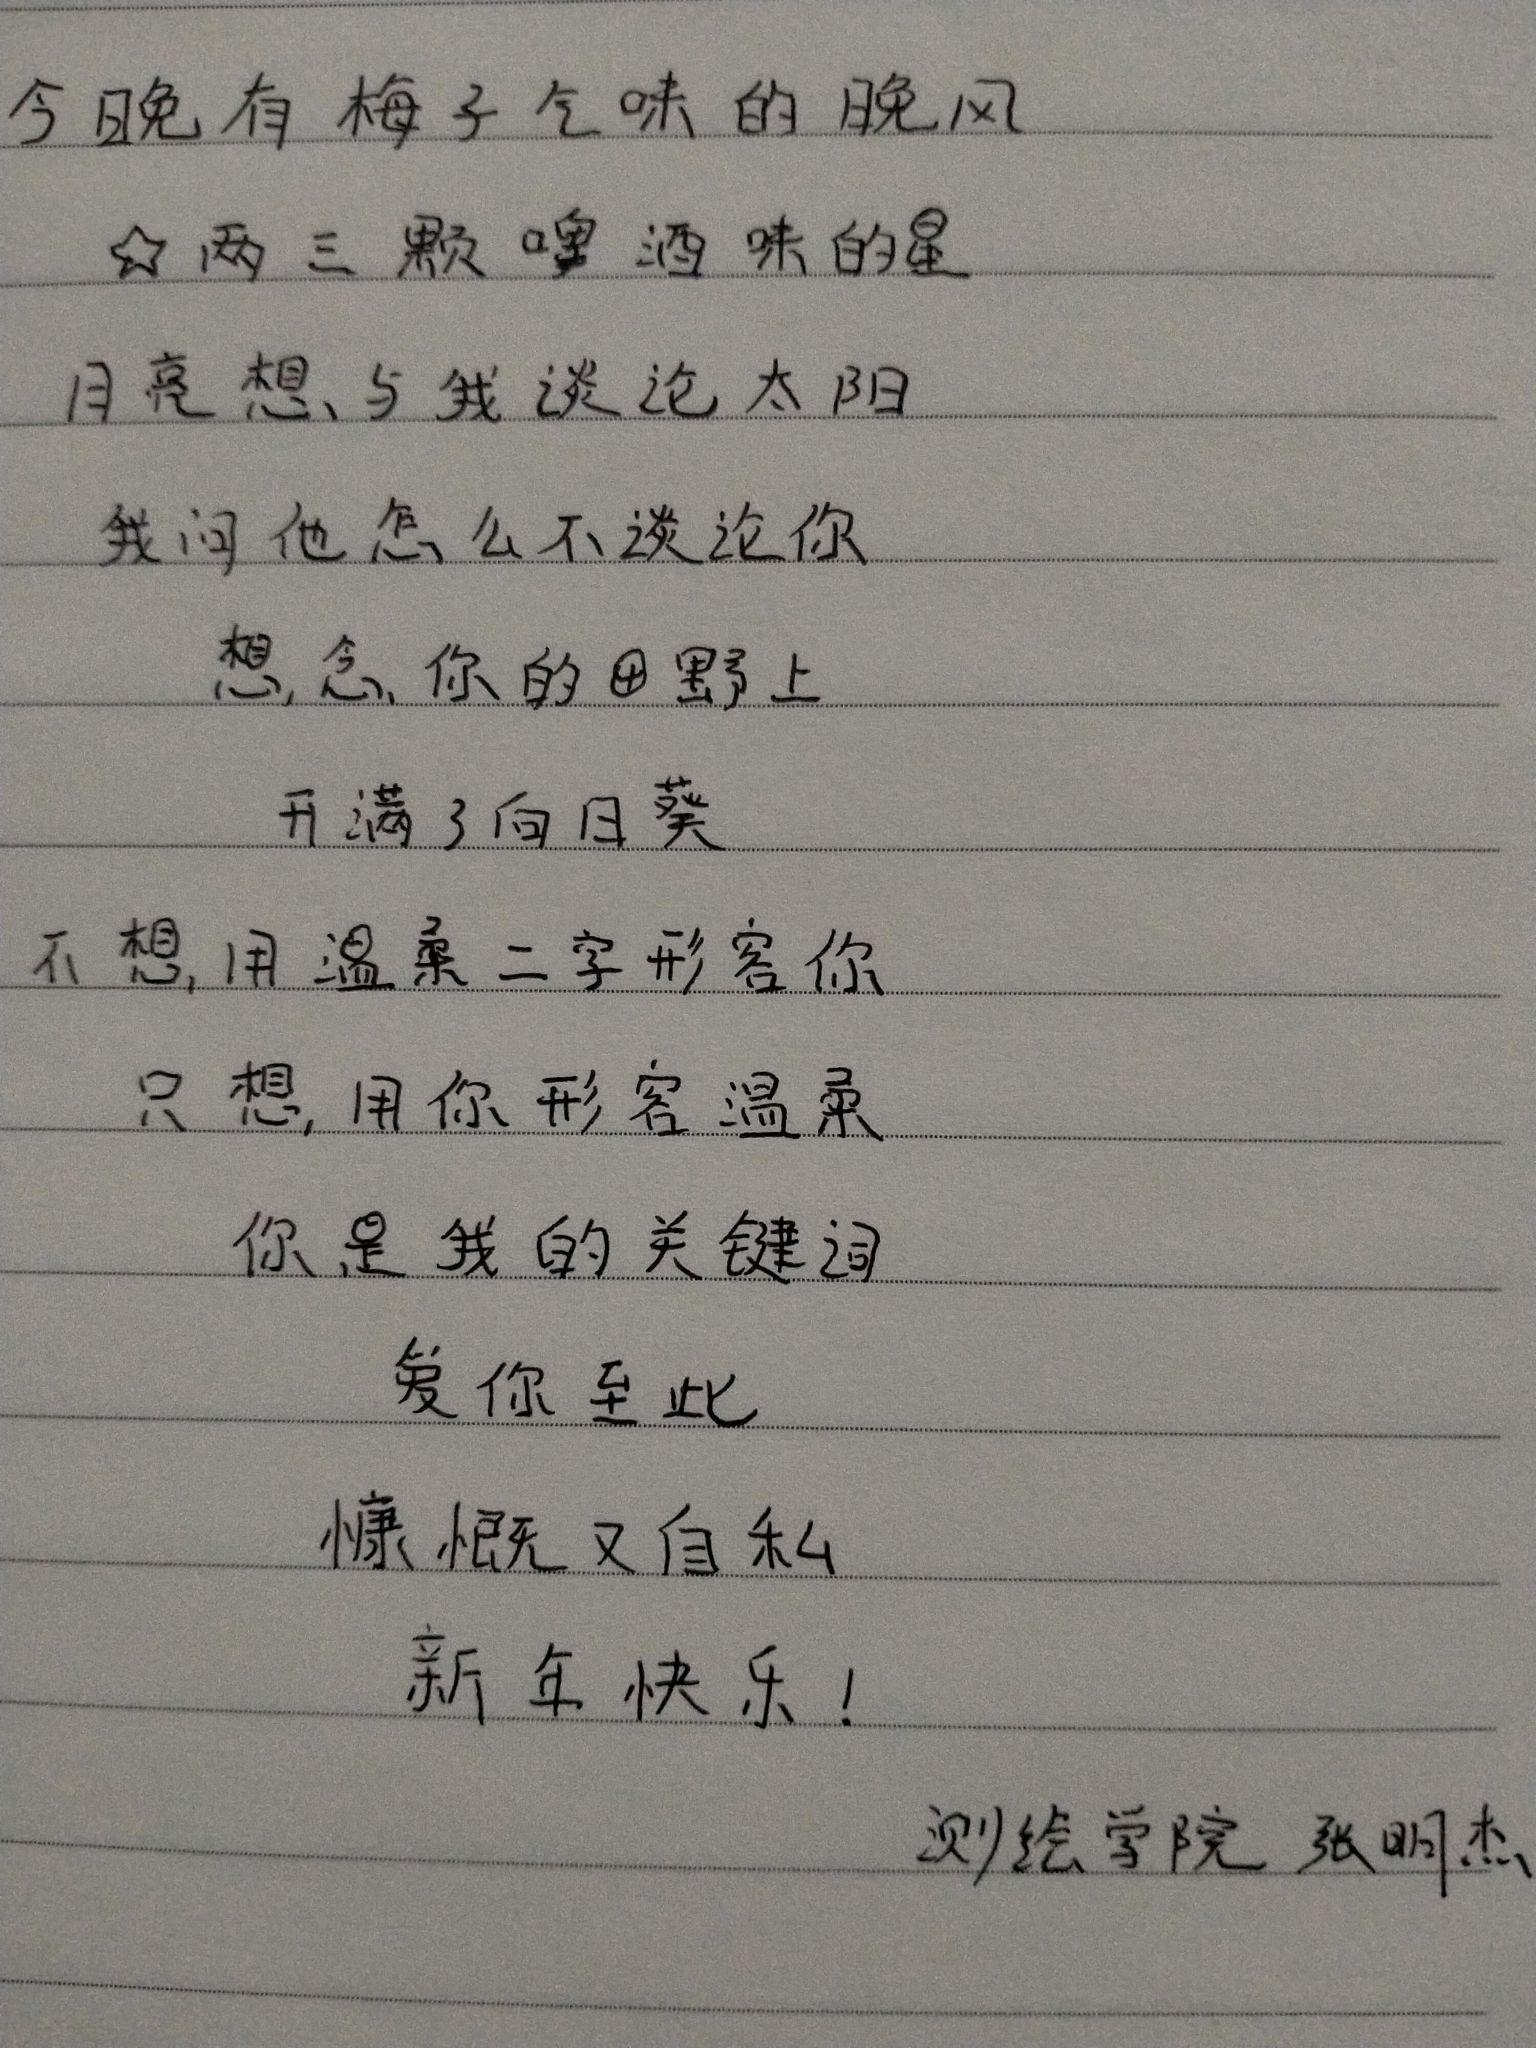 今晚有梅子气味的晚风
☆两三颗啤酒味的星
月亮想与我谈论太阳
我问他怎么不谈论你
想念你的田野上
开满了向日葵
不想用温柔二字形容你
只想用你形容温柔
你是我的关键词
爱你至此
慷慨又自私
新年快乐！
测绘学院 张明杰